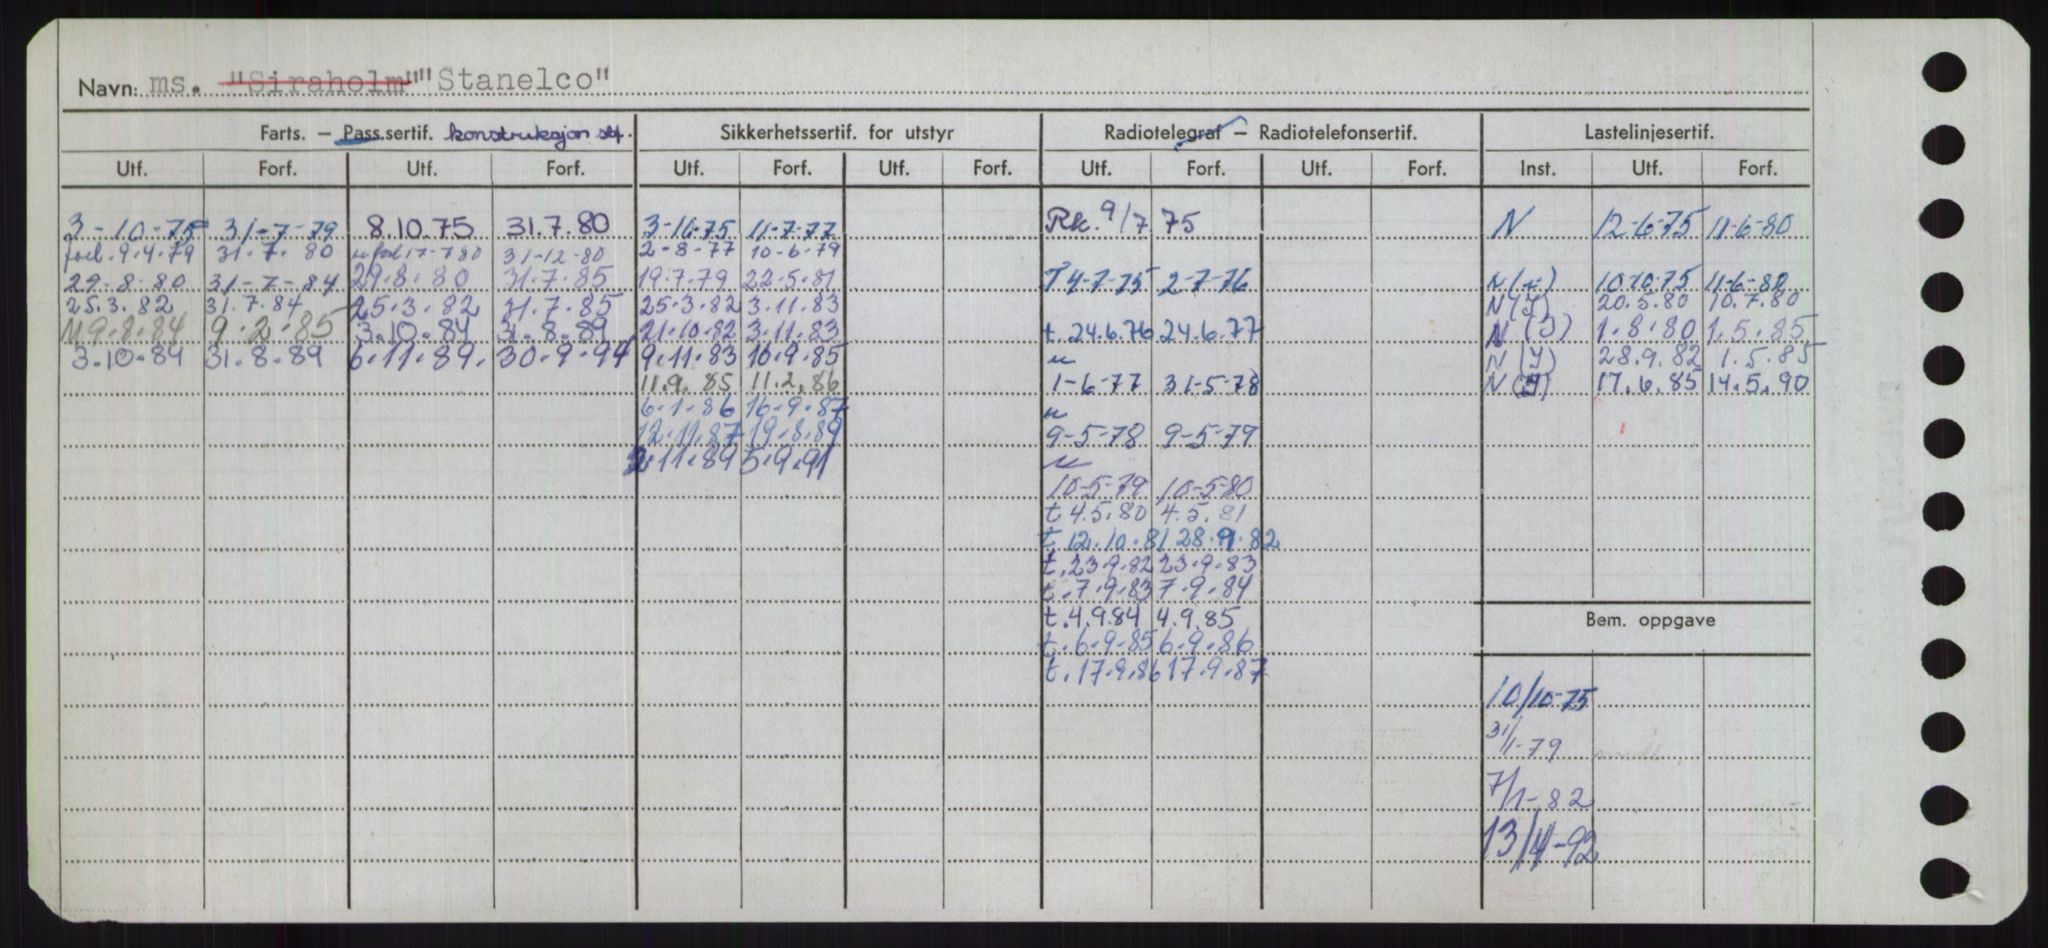 Navn: ms. "Siraholm" "Stanelco"
Farts. — Pass.sertif. konstruksjon stf. Sikkerhetssertif. for utstyr Radiotelegraf — Radiotelefonsertif. Lastelinjesertif.
Utf. Forf. Utf. Forf. Utf. Forf. Utf. Forf. Utf. Forf. Utf. Forf. Inst. Utf. Forf.
3-10-75 31-7-79 8.10.75 31.7.80 3-10-75 11-7-77 Rk. 9/7 75 N 12-6-75 11-6-80
forl. 9.4.79 31.7.80 forl 17-7 80 31-12-80 2-8-77 10-6-79
29-8-80 31-7-84 29.8.80 31.7.85 19.7.79 22.5.81 T 4-7-75 2-7-76 N(N) 10.10.75 11-6-80
25.3.82 31.7.84 25.3.82 31.7.85 25.3.82 3.11.83 N(I) 20.5.80 10.7.80
M9.8.84 9.2.85 3.10.84 31.8.89 21.10.82 3.11.83 t. 24.6.76 24.6.77 N(I) 1.8.80 1.5.85
3.10.84 31.8.89 6.11.89. 30.9.94 9.11.83 16.9.85 " N(I) 28.9.82 1.5.85
11.9.85 11.2.86 1-6-77 31-5-78 N(I) 17.6.85 14.5.90
6.1.86 16.9.87 "
12.11.87 19.8.89 9-5-78 9-5-79
2.11.89 5.9.91 "
10-5-79 10-5-80
t 4.5.80 4.5.81
t. 12.10.81 28.9.82
t. 23.9.82 23.9.83
t. 7.9.83 7.9.84
t. 4.9.84 4.9.85
Bem. oppgave
t. 6.9.85 6.9.86
t. 17.9.86 17.9.87
10/10-75
31/1-79
7/1-82
13/4-92